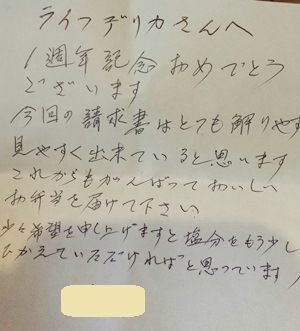 ライフデリカさんへ
1週年記念おめでとう
ございます
今回の請求書はとても解りやす
見やすく出来ていると思います
これからもがんばっておいしい
お弁当を届けて下さい
少々希望を申し上げますと塩分をもう少し
ひかえていただければと思っています